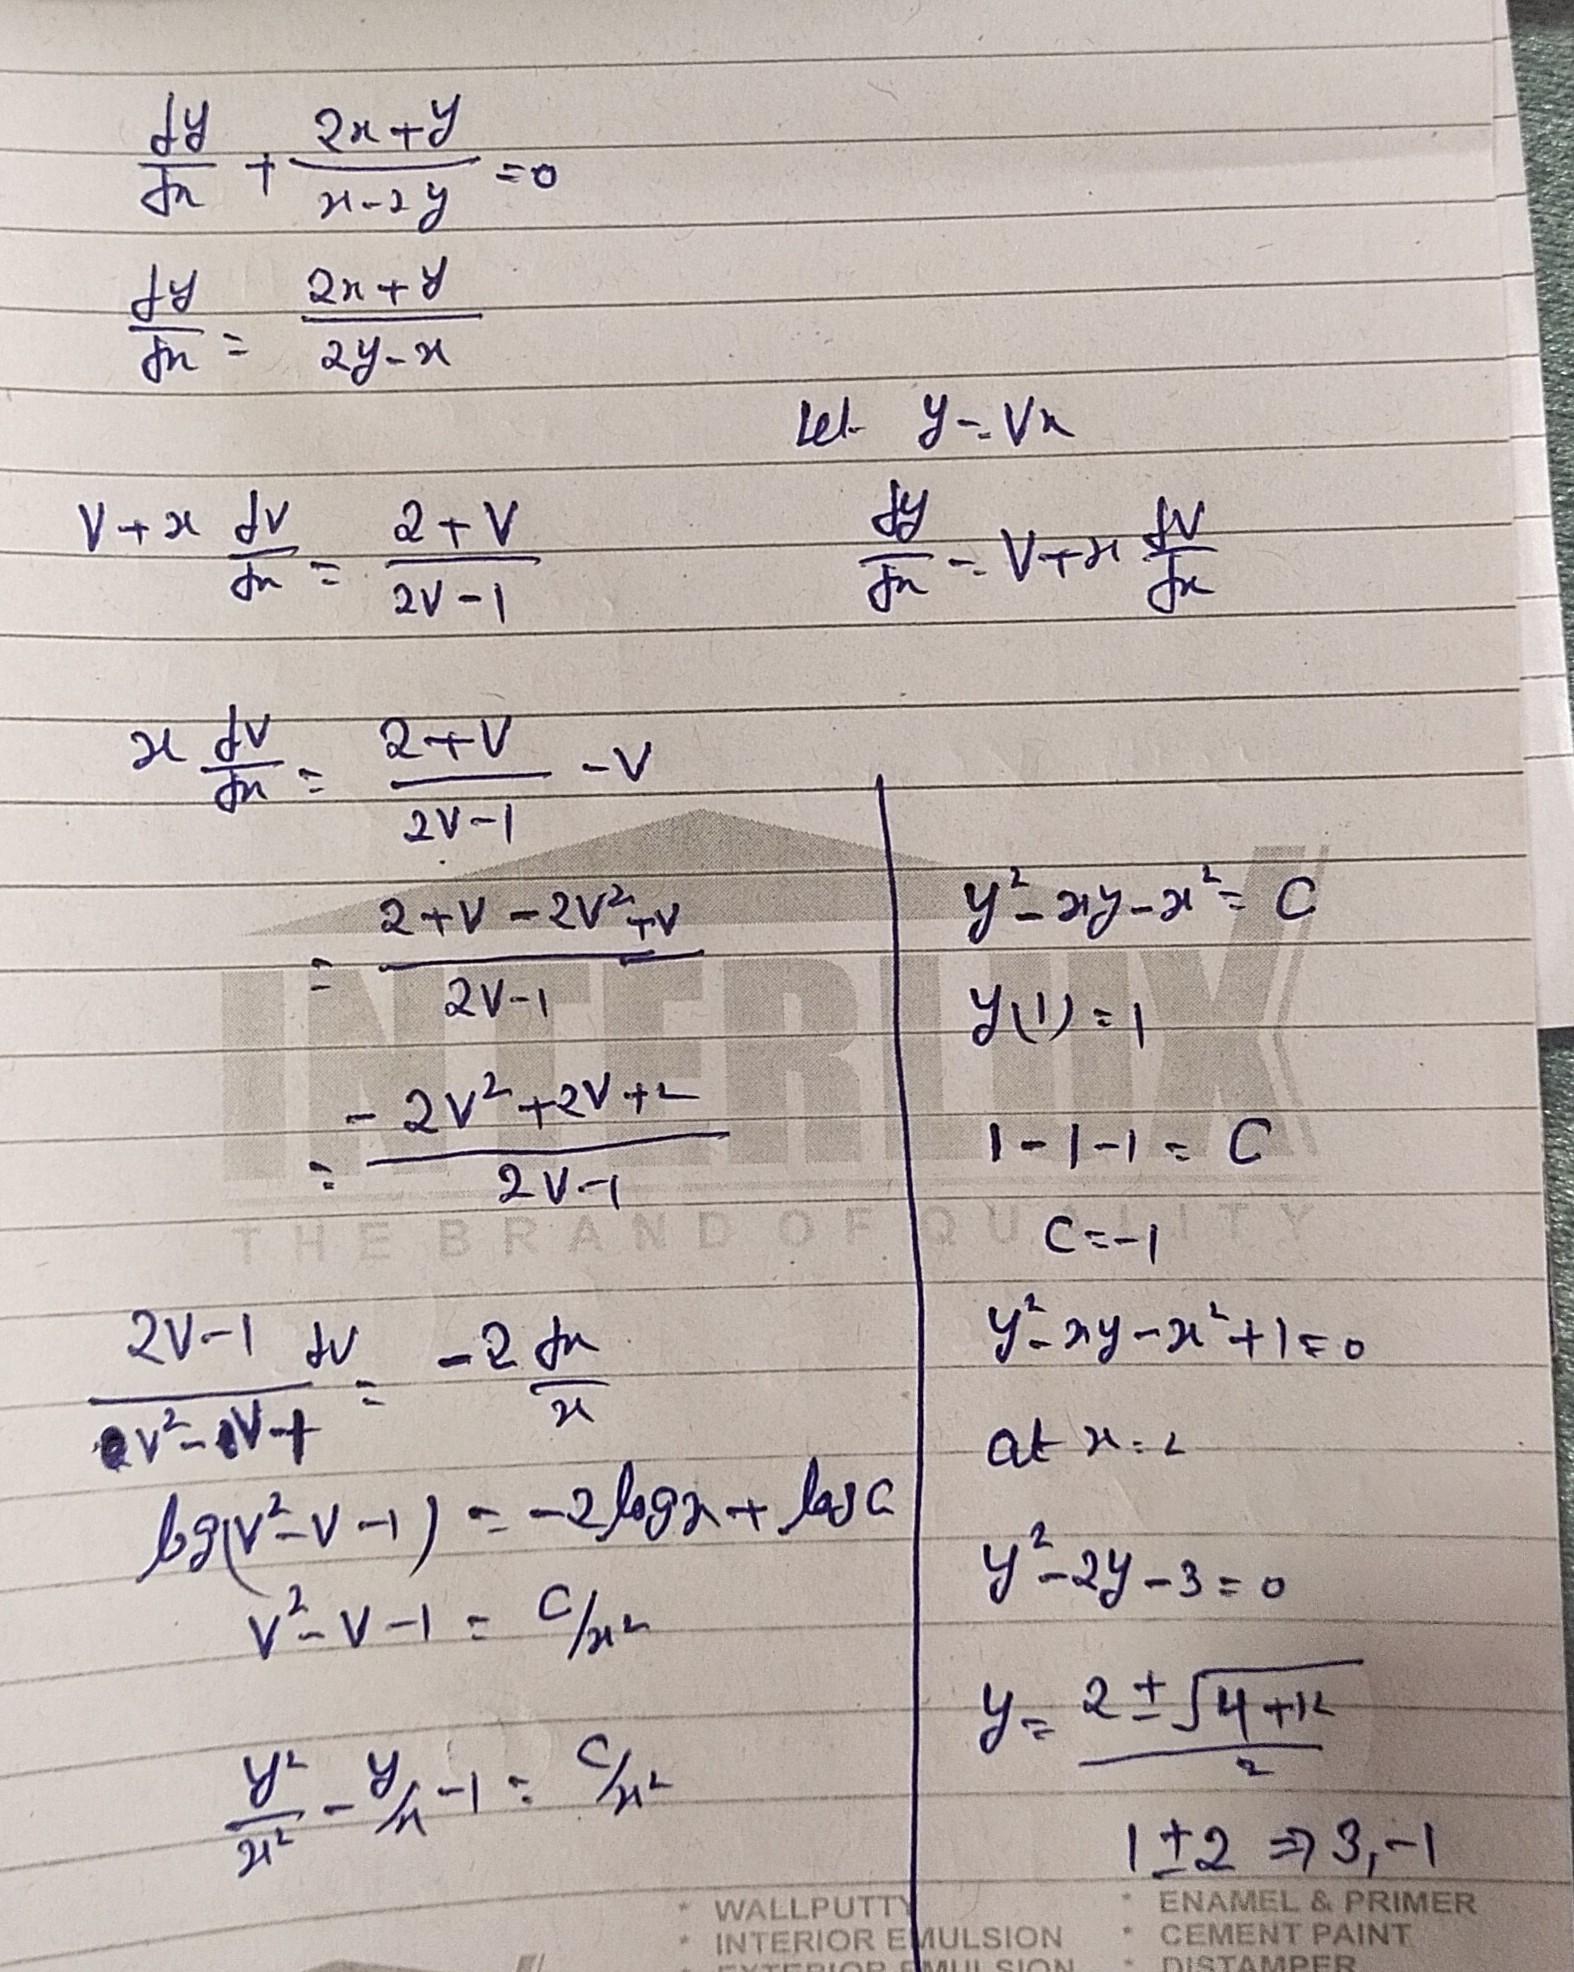 dy/dx + (2x+y)/(x-2y) = 0
dy/dx = (2x+y)/(2y-x)
Let y = Vx
V + x dV/dx = (2+V)/(2V-1)
dy/dx = V + x dV/dx
x dV/dx = (2+V)/(2V-1) - V
= (2+V-2V²+V)/(2V-1)
= (-2V²+2V+2)/(2V-1)
(2V-1)/(V²-V-1) dV = -2 dx/x
log(V²-V-1) = -2logx + logC
V²-V-1 = C/x²
y²/x² - y/x - 1 = C/x²
y²-xy-x² = C
y(1) = 1
1-1-1 = C
C=-1
y²-xy-x²+1=0
at x=2
y²-2y-3=0
y = (2±√(4+12))/2
1±2 ⇒ 3,-1
INTERLUX
THE BRAND OF QUALITY
* WALLPUTTY
* INTERIOR EMULSION
* EXTERIOR EMULSION
* ENAMEL & PRIMER
* CEMENT PAINT
* DISTAMPER